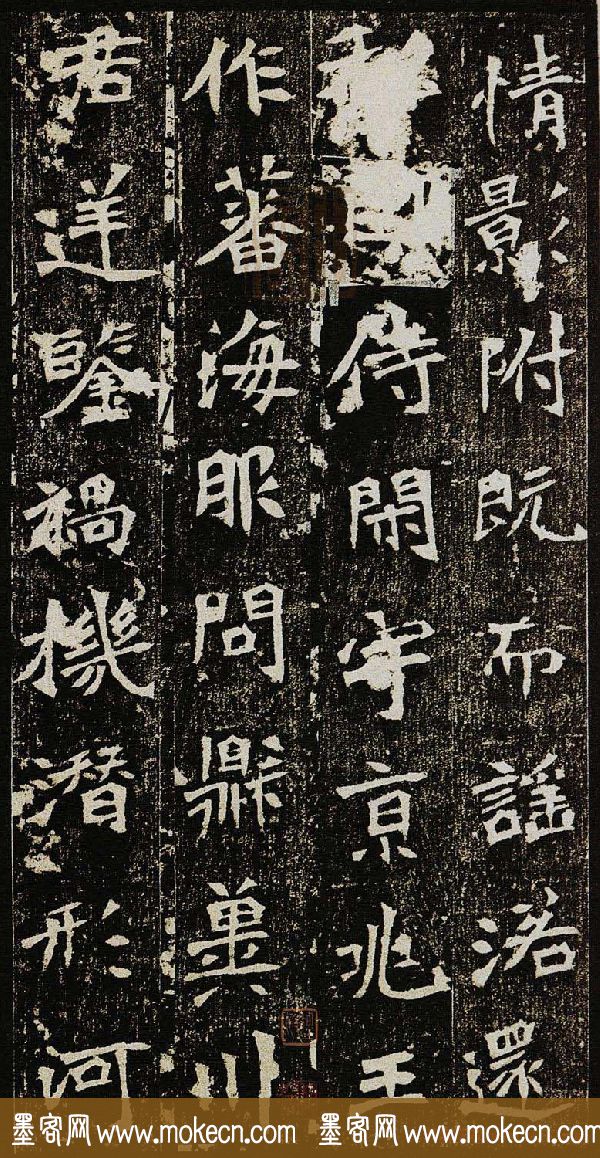 情影附既而謡洛還
侍閑守京兆王
作蕃海服問鼎冀川
君逆鑒禍機潜形河
墨客网 www.mokecn.com 墨客网 www.mokecn.com